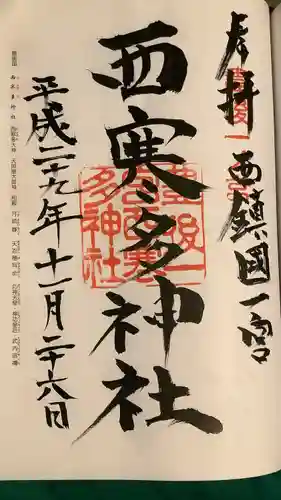 奉拝 西鎮国一宮
豊後一
西寒多神社
豊後一
宮西寒
多神社
平成二十九年十一月二十六日